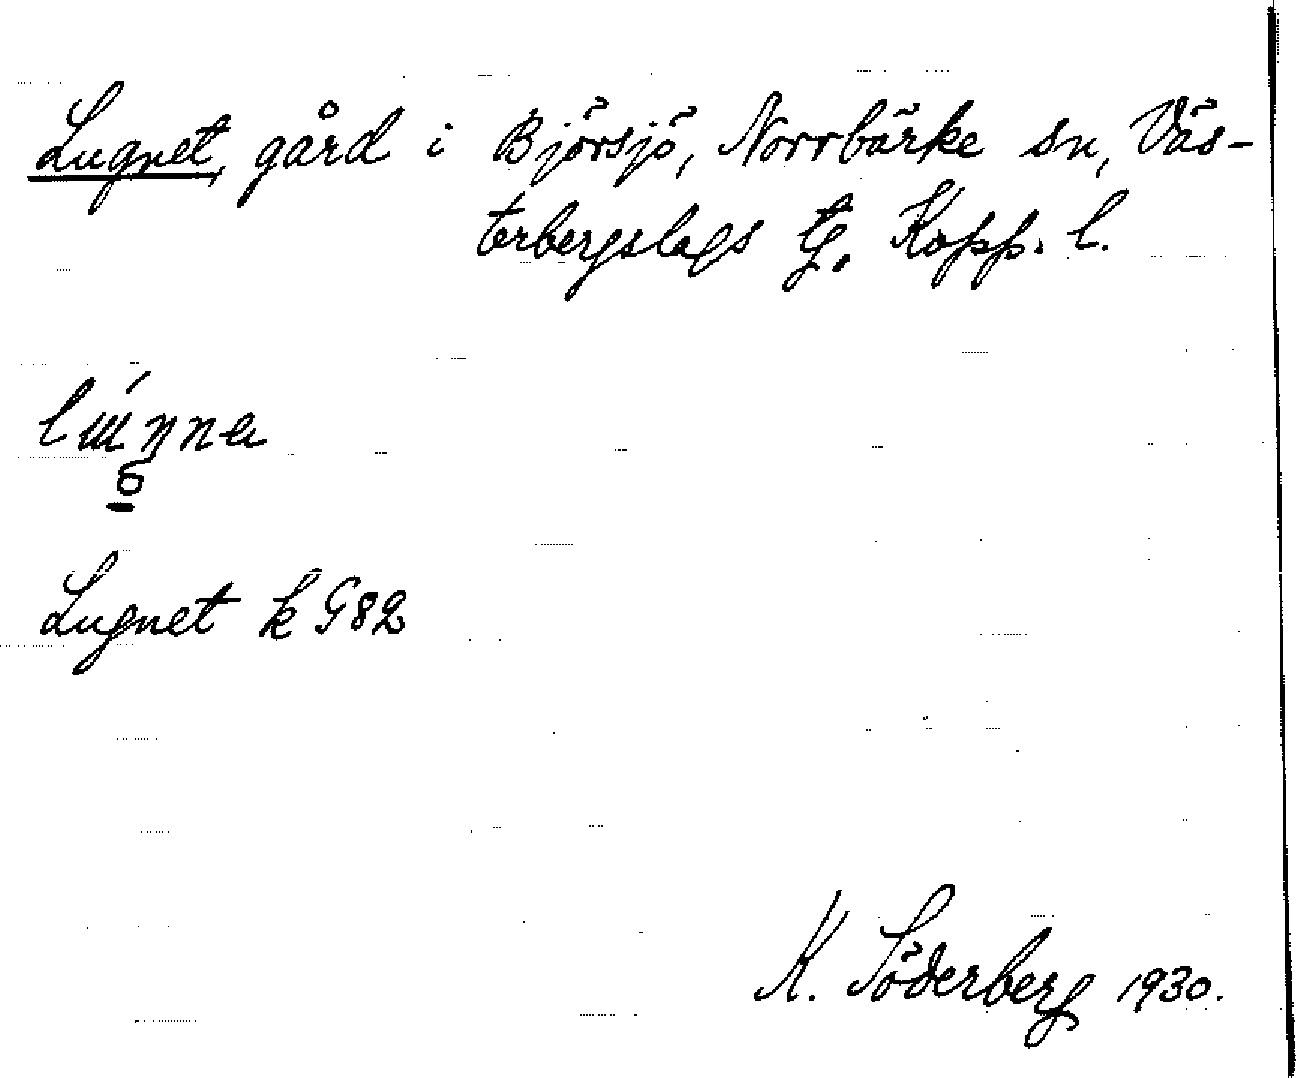 Lugnet, gård i Björsjö, Norrbärke sn, Väs-
terbergslags tg. Kopp. l.
Lugnet k G82
K. Söderberg 1930.